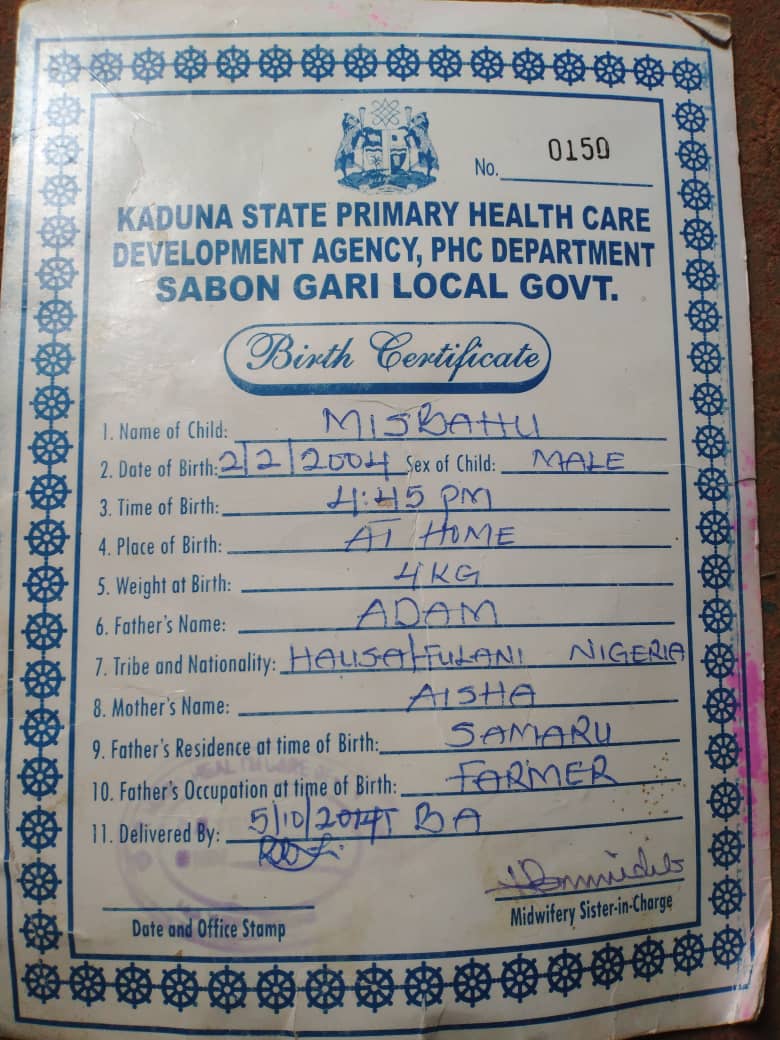 No. 0150
KADUNA STATE PRIMARY HEALTH CARE
DEVELOPMENT AGENCY, PHC DEPARTMENT
SABON GARI LOCAL GOVT.
Birth Certificate
1. Name of Child: MISBAHU
2. Date of Birth: 2/2/2004 Sex of Child: MALE
3. Time of Birth: 4:45 PM
4. Place of Birth: AT HOME
5. Weight at Birth: 4KG
6. Father's Name: ADAM
7. Tribe and Nationality: HAUSA/FULANI NIGERIA
8. Mother's Name: AISHA
9. Father's Residence at time of Birth: SAMARU
10. Father's Occupation at time of Birth: FARMER
11. Delivered By: 5/10/2014 TBA
Midwifery Sister-in-Charge
Date and Office Stamp